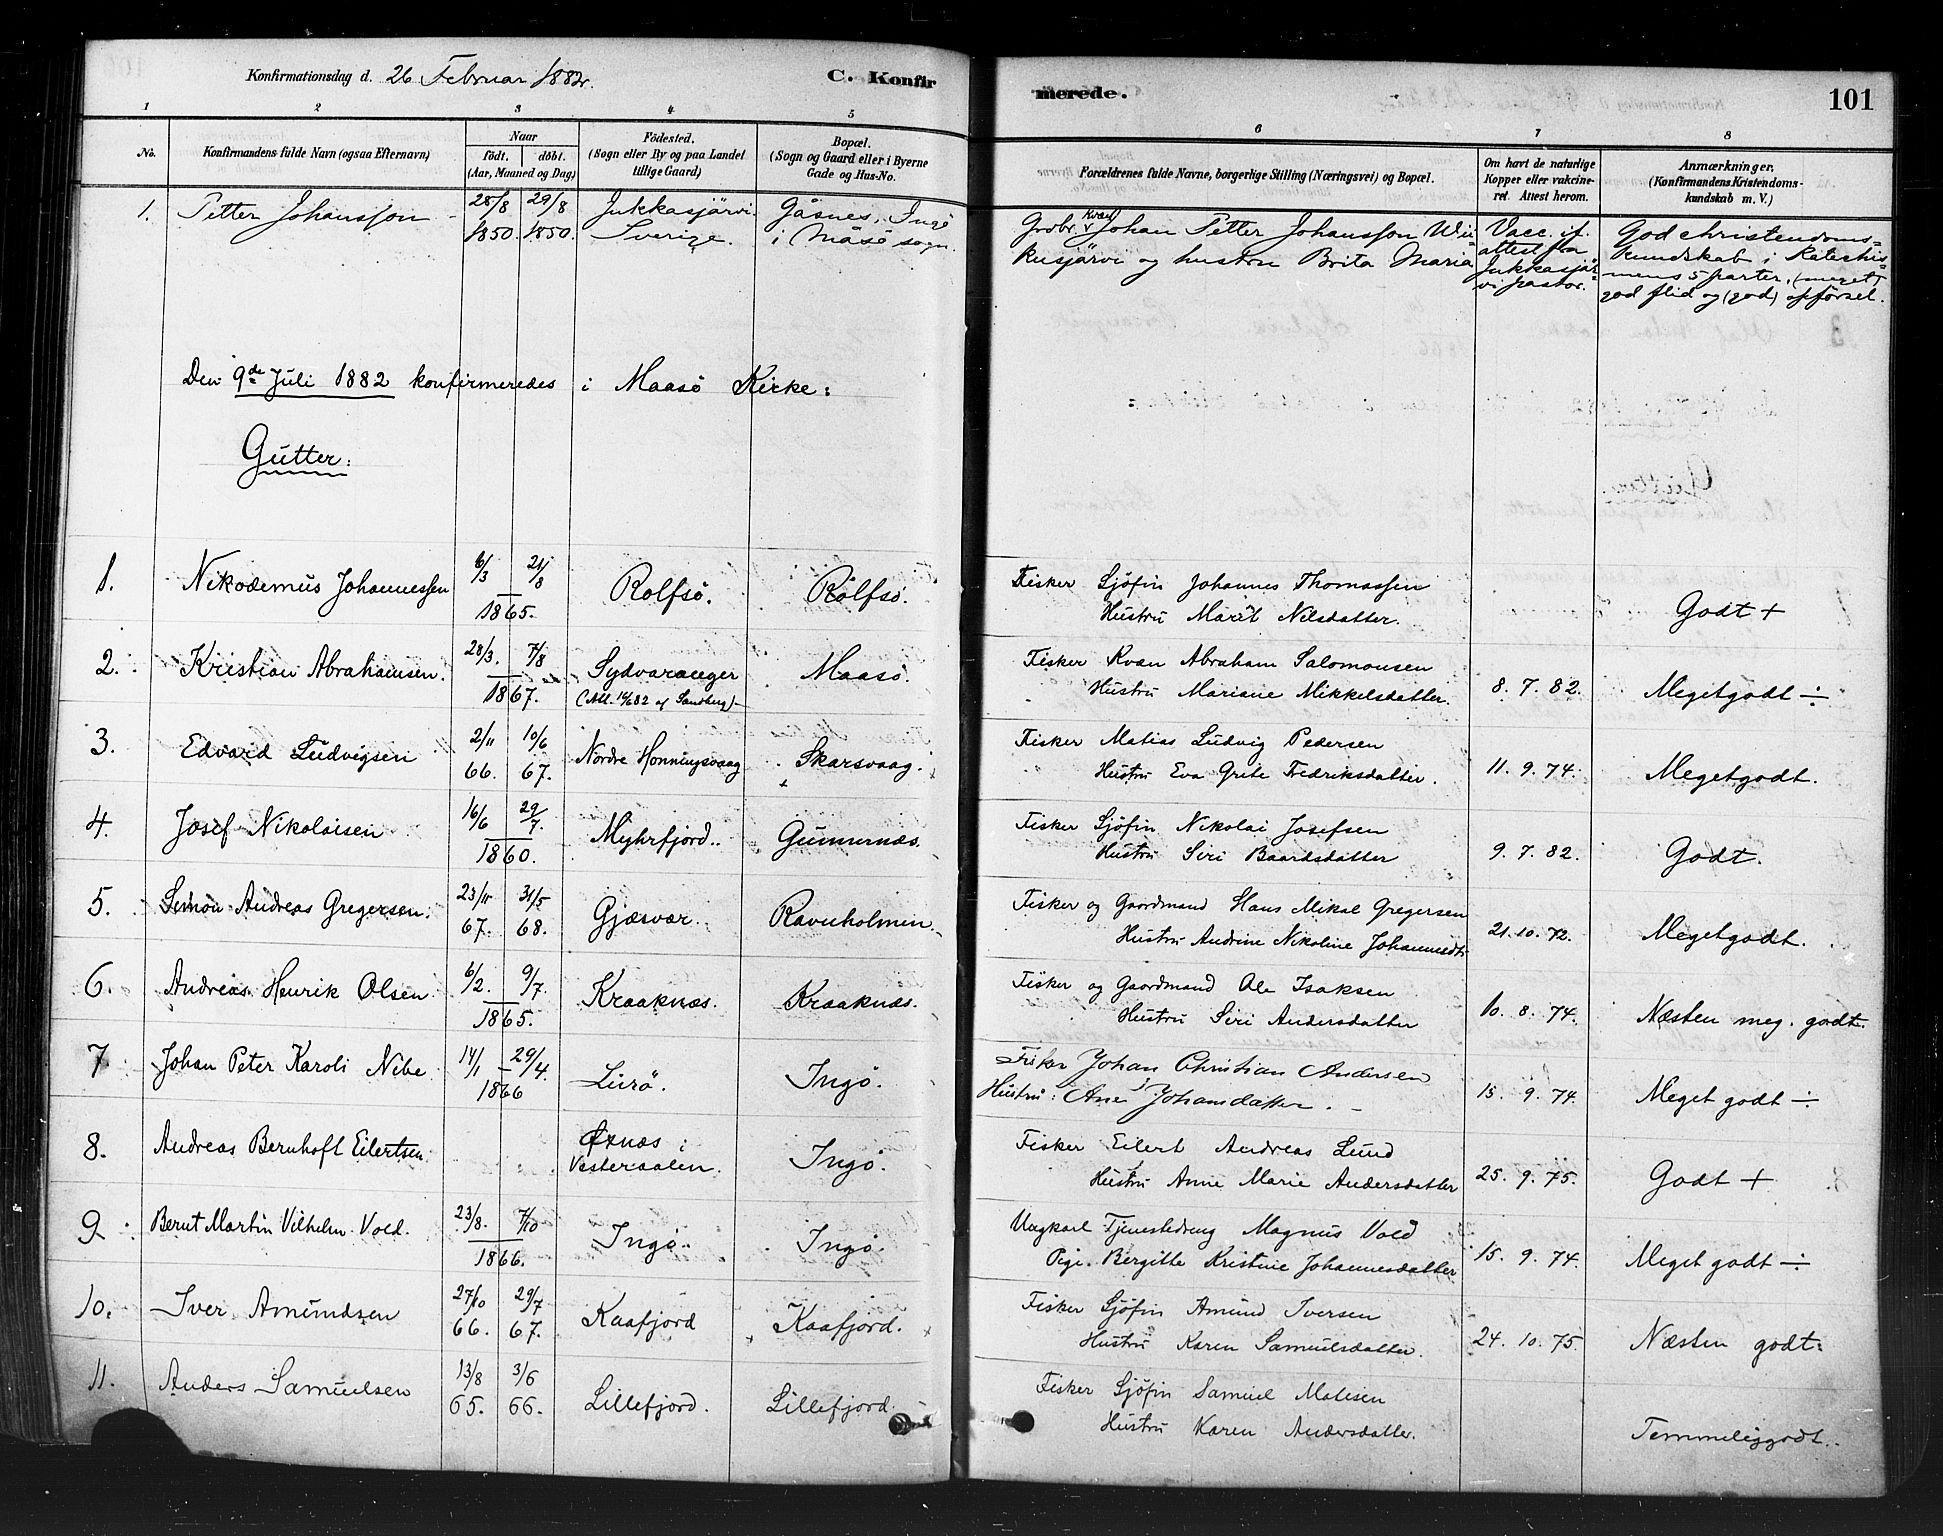 Konfirmationsdag d. 26 Februar 1882.
C. Konfirmerede.
101
1 2 3 4 5 6 7 8
No.
Konfirmandens fulde Navn (ogsaa Efternavn)
Naar
födt. döbt.
(Aar, Maaned og Dag)
Födested.
(Sogn eller By og paa Landet
tillige Gaard)
Bopæl.
(Sogn og Gaard eller i Byerne
Gade og Hus-No.
Forældrenes fulde Navne, borgerlige Stilling (Næringsvei) og Bopæl.
Om havt de naturlige
Kopper eller vakcine-
ret. Attest herom.
Anmærkninger.
(Konfirmandens Kristendoms-
kundskab m. V.)
1. Petter Johansson
28/8 29/8
1850. 1850.
Jukkasjärvi
Sverige.
Gåsnes, Ingö
i Måsö sogn.
Johan Petter Johansson Wii-
kusjärvi og hustru Brita Maria
Vacc. if.
attest fra
Jukkasjär-
vi pastor.
God christendoms-
kundskab i Katechis-
mens 5 parter, (meget)
god flid og (god) opførsel.
Den 9de Juli 1882 konfirmeredes i Maasö Kirke:
Gutter:
1. Nikodemus Johannessen
6/3 21/8
1865.
Rolfsö. Rolfsö.
Fisker Sjöfin Johannes Thomassen
Hustru Marit Nilsdatter.
Godt +
2. Kristian Abrahamsen.
28/3. 7/8
1867.
Sydvaranger
Maasö.
Fisker Kvæn Abraham Salomonsen
Hustru Mariane Mikkelsdatter.
8. 7. 82.
Megetgodt ÷
3. Edvard Ludvigsen
2/11 10/6
66. 67.
Nordre Honningsvaag
Skarsvaag.
Fisker Matias Ludvig Pedersen
Hustru Eva Grite Fredriksdatter.
11. 9. 74.
Megetgodt.
4. Josef Nikolaisen
16/6 29/7.
1860.
Myhrfjord.
Gunnernæs.
Fisker Sjöfin Nikolai Josefsen
Hustru Siri Baardsdatter
9. 7. 82.
Godt.
5. Simon Andreas Gregersen.
23/11 31/5
67. 68.
Gjæsvær.
Ravnholmen.
Fisker og Gaardmand Hans Mikal Gregersen
Hustru Andrine Nikoline Johannesdtr
21. 10. 72.
Megetgodt.
6. Andreas Henrik Olsen
6/2. 9/7.
1865.
Kraaknæs. Kraaknæs.
Fisker og Gaardmand Ole Isaksen
Hustru Siri Andersdatter
10. 8. 74.
Næsten meg. godt.
7 Johan Peter Karoli Nibe
14/1 29/4.
1866
Lurö. Ingö.
Fisker Johan Christian Andersen
Hustru: Ane Johansdatter.
15. 9. 74.
Meget godt ÷
8. Andreas Bernhoft Eilertsen
Øxnæs i
Vesteraalen.
Ingö.
Fisker Eilert Andreas Lund
Hustru Anne Marie Andersdatter
25. 9. 75.
Godt +
9. Bernt Martin Vilhelm Vold.
23/8. 7/10
1866.
Ingö. Ingö.
Ungkarl Tjenestedreng Magnus Vold
Pige Bergitte Kristine Johannesdatter
15. 9. 74.
Meget godt ÷
10. Iver Amundsen
27/10 29/7
66. 67.
Kaafjord Kaafjord.
Fisker Sjöfin Amund Iversen
Hustru Karen Samuelsdatter.
24. 10. 75.
Næsten godt.
11. Anders Samuelsen
13/8 3/6
65. 66.
Lillefjord. Lillefjord.
Fisker Sjöfin Samuel Matisen
Hustru Karen Andersdatter.
Temmeliggodt.